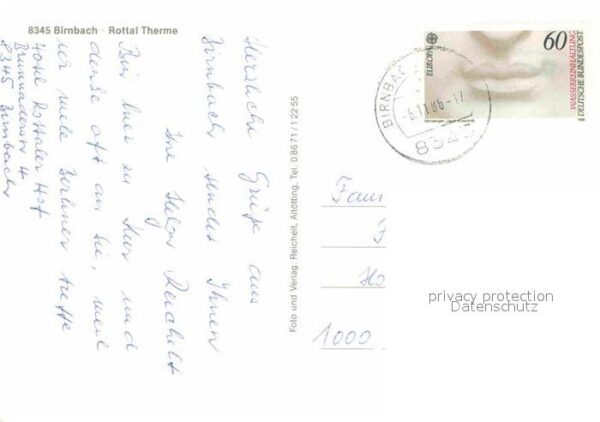 8345 Birnbach · Rottal Therme
Herzliche Grüße aus
Birnbach sendet Ihnen
Ihr Helga Reichelt
Bin hier zu Kur und
denke oft an Sie, weil
ich viele Berliner treffe
Hotel Rottaler Hof
8345 Birnbach
Foto und Verlag Reichelt, Altötting, Tel. 0 86 71 / 1 22 55
EUROPA
60
WASSERREINHALTUNG
DEUTSCHE BUNDESPOST
BIRNBACH
-6.11.86-17
8345
Fam
1000
privacy protection
Datenschutz